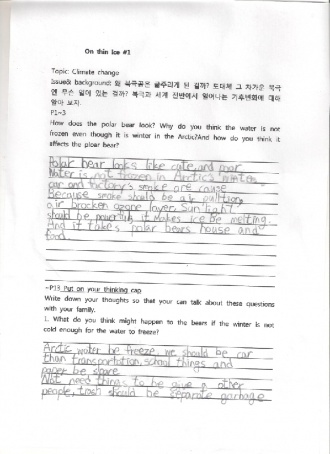 On thin Ice #1
Topic: Climate change
Issue& background: 왜 북극곰은 굶주리게 된 걸까? 도대체 그 차가운 북극
엔 무슨 일이 있는 걸까? 북극과 세계 전반에서 일어나는 기후변화에 대해
알아 보자.
P1~3
How does the polar bear look? Why do you think the water is not
frozen even though it is winter in the Arctic?And how do you think it
affects the ploar bear?
Polar bear looks like cute and poor
Water is not frozen in Arctic's winter
car and factory's smoke are cause
Because smoke should be air pollution
air brocken ozone layer. Sun light
should be powerful, it makes ice be melting.
And it takes polar bears house and
food.
~P13 Put on your thinking cap
Write down your thoughts so that your can talk about these questions
with your family.
1. What do you think might happen to the bears if the winter is not
cold enough for the water to freeze?
Arctic water be freeze, we should be car
than transportation, school things and
paper be spare
Not need things to be give a other
people, trash should be separate garbage